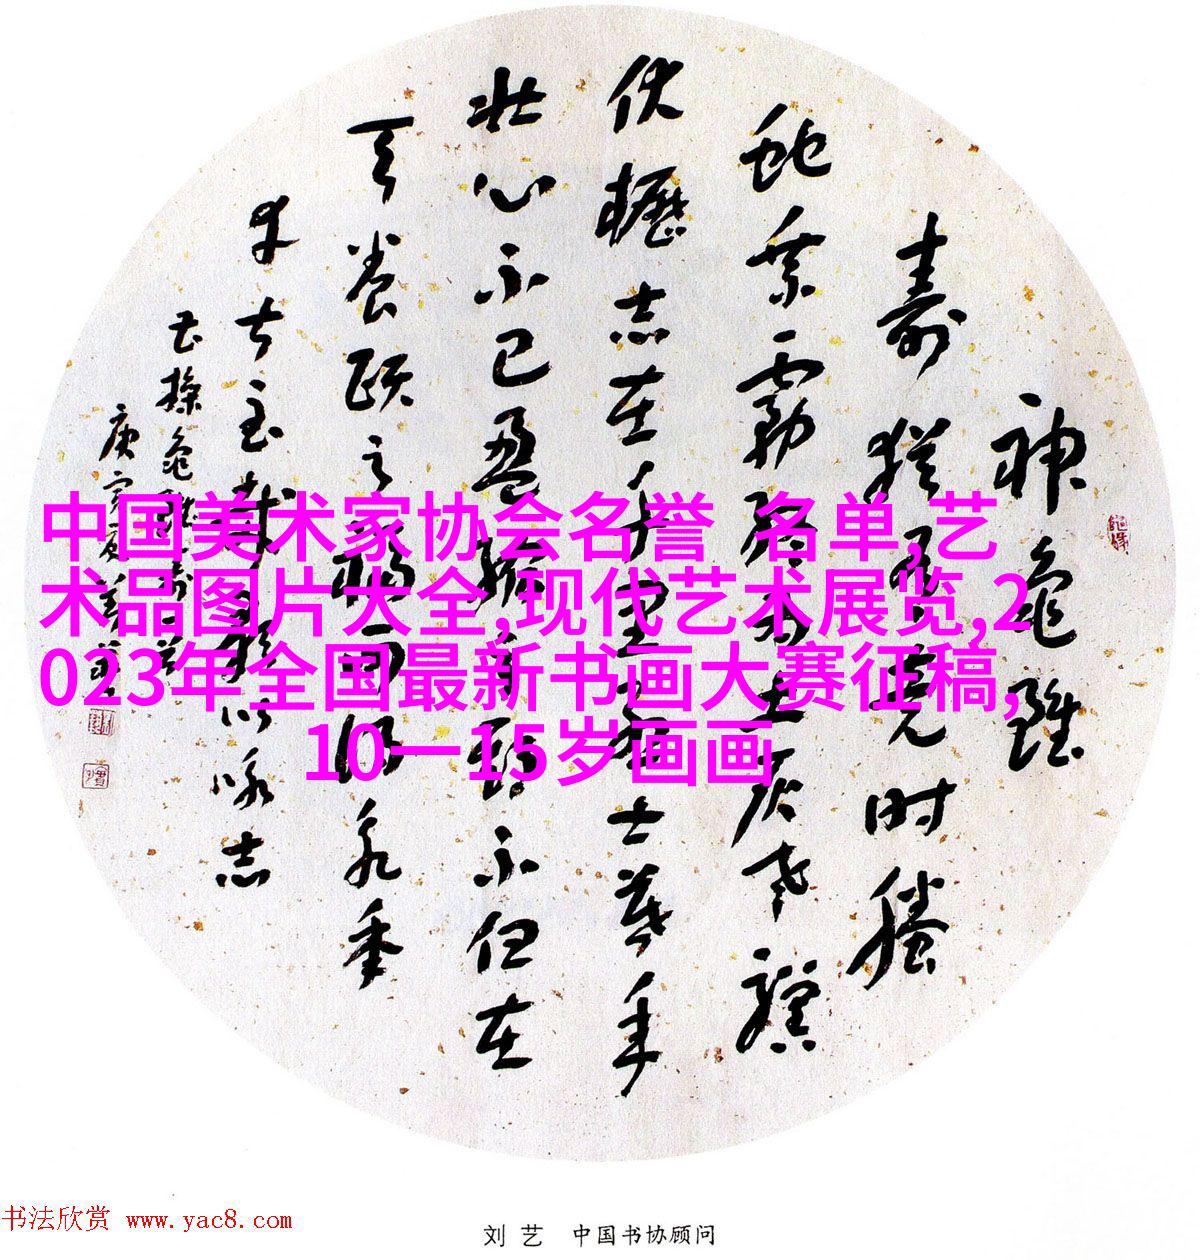 神龜雖
壽猶有竟时騰
蛇乘霧終为土灰老驥
伏櫪志在千里烈士暮年
壮心不已盈縮之期不但在
天养頤之福可得永年
幸甚至哉歌以咏志
曹操龜雖壽
庚寅夏
中国美术家协会名誉 名单,艺
术品图片大全,现代艺术展览,2
023年全国最新书画大赛征稿,
10一15岁画画
书法欣赏 www.yac8.com
刘艺 中国书协顾问